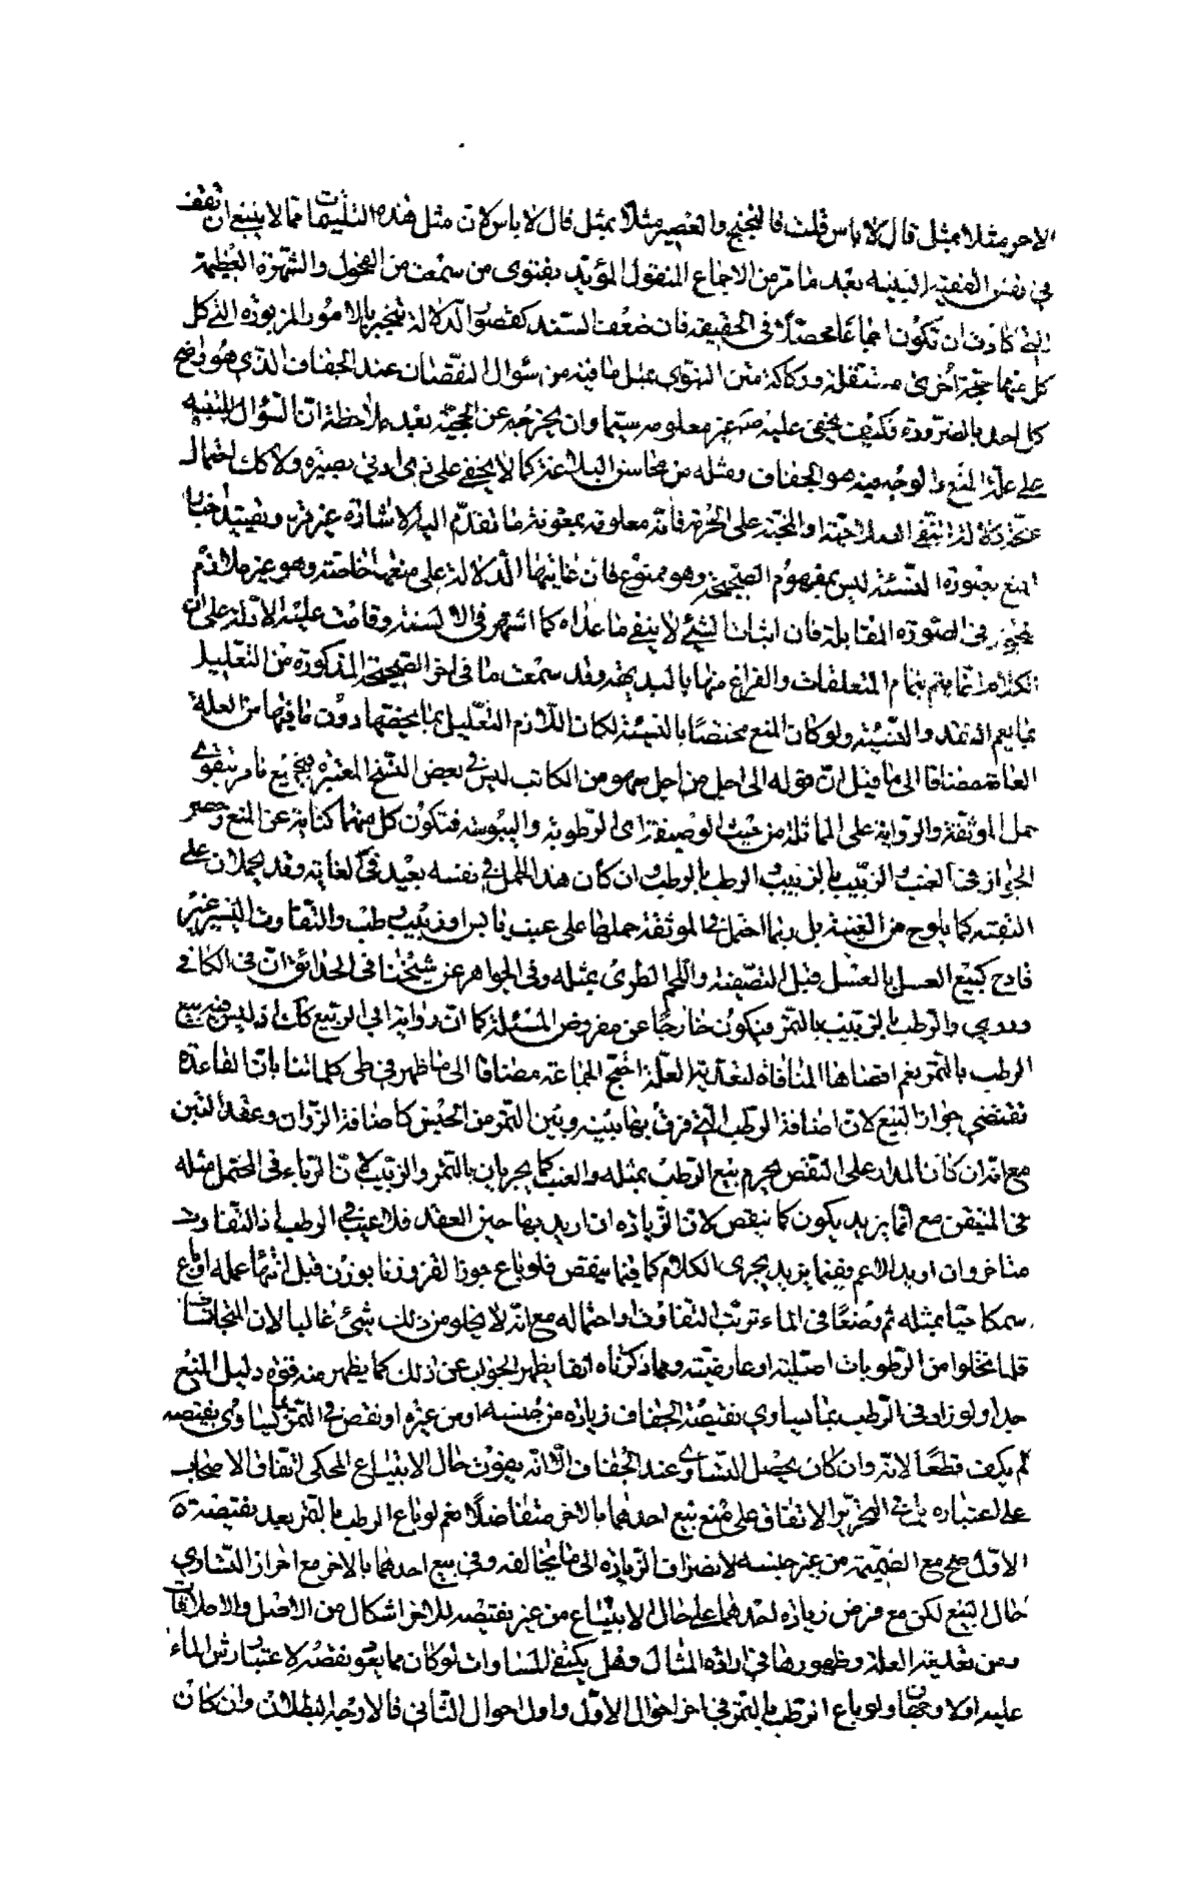 الاخر مثلا بمثل قال لا باس قلت فالبختج والعصير مثلا بمثل قال لا باس لان مثل هذه التلبيهات مما لا ينبغي ان تقف
في نفس الفقيه النبيه بعد ما مر من الاجماع المنقول المؤيد بفتوى من سمعت من الفحول والشهرة العظيمة
التي كادت ان تكون اجماعا محصلا في الحقيقة فان ضعف السند كقصور الدلالة تنجبر بالامور المزبورة التي كل
كل منها حجة اخرى مستقلة وركاكة متن النبوي بمثل ما فيه من سؤال النقصان عند الجفاف الذي هو واضح
كل احد بالضرورة فكيف يخفى عليه ص غير معلومه سيما وان يخرجه عن الحجية بعد ملاحظة ان السؤال للتنبيه
على علة المنع والوجه فيه هو الجفاف ومثله من محاسن البلاغة كما لا يخفى على ذي ادنى بصيرة ولا كك احتمال
عدم دلالة نفي الصلاحية او المحبة على الحرمة فانه معلومة بمعونة ما تقدم اليه الاشارة غير مرة وتقييد اخبار
المنع بصورة النسئة ليس بمفهوم الصحيحة وهو ممنوع فان غايتها الدلالة على منعها خاصة وهو غير ملازم
للجواز في الصورة المقابلة فان اثبات الشئ لا ينفي ما عداه كما اشتهر في الالسنة وقامت عليه الادلة على ان
الكلام انما يتم بتمام المتعلقات والفراغ منها بالبديهة وقد سمعت ما في اخر الصحيحة المذكورة من التعليل
بما يعم النقد والنسيئة ولو كان المنع مختصا بالنسيئة لكان اللازم التعليل بما يخصها دون ما فيها من العلة
العامة مضافا الى ما قيل ان قوله الى اجل من اجل سهو من الكاتب ليس في بعض النسخ المعتبرة فبجميع ما مر يتقوى
حمل الموثقة والرواية على المماثلة من حيث الوصفية اى الرطوبة واليبوسة فتكون كل منهما كناية عن المنع وحصر
الجواز في العنب والزبيب بالزبيب والرطب بالرطب وان كان هذا الحمل في نفسه بعيد في الغاية وقد يحملان على
التقية كما يلوح من الغنية بل ربما احتمل في الموثقة حملها على عنب يابس او زبيب رطب والتفاوت اليسير غير
قادح كبيع العسل بالعسل قبل التصفية واللحم الطري بمثله وفي الجواهر عن شيخنا في الحدائق ان في الكافي
وروي والرطب بالزبيب بالتمر فيكون خارجا عن مفروض المسئلة كما ان رواية ابي الربيع كك اذ ليس فيه بيع
الرطب بالتمر نعم اقتضاها المنافاة لتعدية العلة احتج الجماعة مضافا الى ما ظهر في طي كلماتنا بان القاعدة
تقتضي جواز البيع لان اضافة الرطب التي فرق بها بينه وبين التمر من الجنس كاضافة الزوان وعقد التبن
مع انه ان كان المدار على النقص لحرم بيع الرطب بمثله والعنب كما يحرمان بالتمر والزبيب لان الرباء في المحتمل مثله
في المتيقن مع انما يزيد يكون كما ينقص لان الزيادة ان اريد بها حين العقد فلا عيب في الرطب اذ التفاوت
متاخر وان اريد الاعم ففيما يزيد يجرى الكلام كما فيما ينقص فلو باع جوز القز وزنا بوزن قبل انتهاء عمله او باع
سمكا حيا بمثله ثم وضعا في الماء ترتب التفاوت واحتماله مع انه لا يخلو من ذلك شئ غالبا لان المتجانسات
قلما تخلوا من الرطوبات اصلية او عارضية ومما ذكرناه انفا يظهر الجواب عن ذلك كما يظهر منه قوة دليل المنع
جدا ولو زاد في الرطب بما يساوي نقيصة الجفاف زيادة من جنسه او من غيره او نقص في التمر بما يساوى نقيصه
لم يكف قطعا لانه وان كان يحصل التساوى عند الجفاف الا انه يفوت حال الابتياع المحكى اتفاق الاصحاب
على اعتباره بل في التحرير الاتفاق على منع بيع احدهما بالاخر متفاضلا نعم لو باع الرطب بالتمر بعد نقيصته
الاول صح مع الضميمة من غير جنسه لانصراف الزيادة الى ما يخالفه وفي بيع احدهما بالاخر مع احراز التساوي
حال البيع لكن مع فرض زيادة احدهما على حال الابتياع من غير نقيصه للاخر اشكال من الاصل والاطلاقات
ومن تغليب العلة وظهورها في ارادة المثال وهل يكفى المساوات لو كان مما يعود نقصه لاعتبار رش الماء
عليه او لا وجهان ولو باع الرطب بالتمر في اخر احوال الاول واول احوال الثاني فالاوجه البطلان وان كان